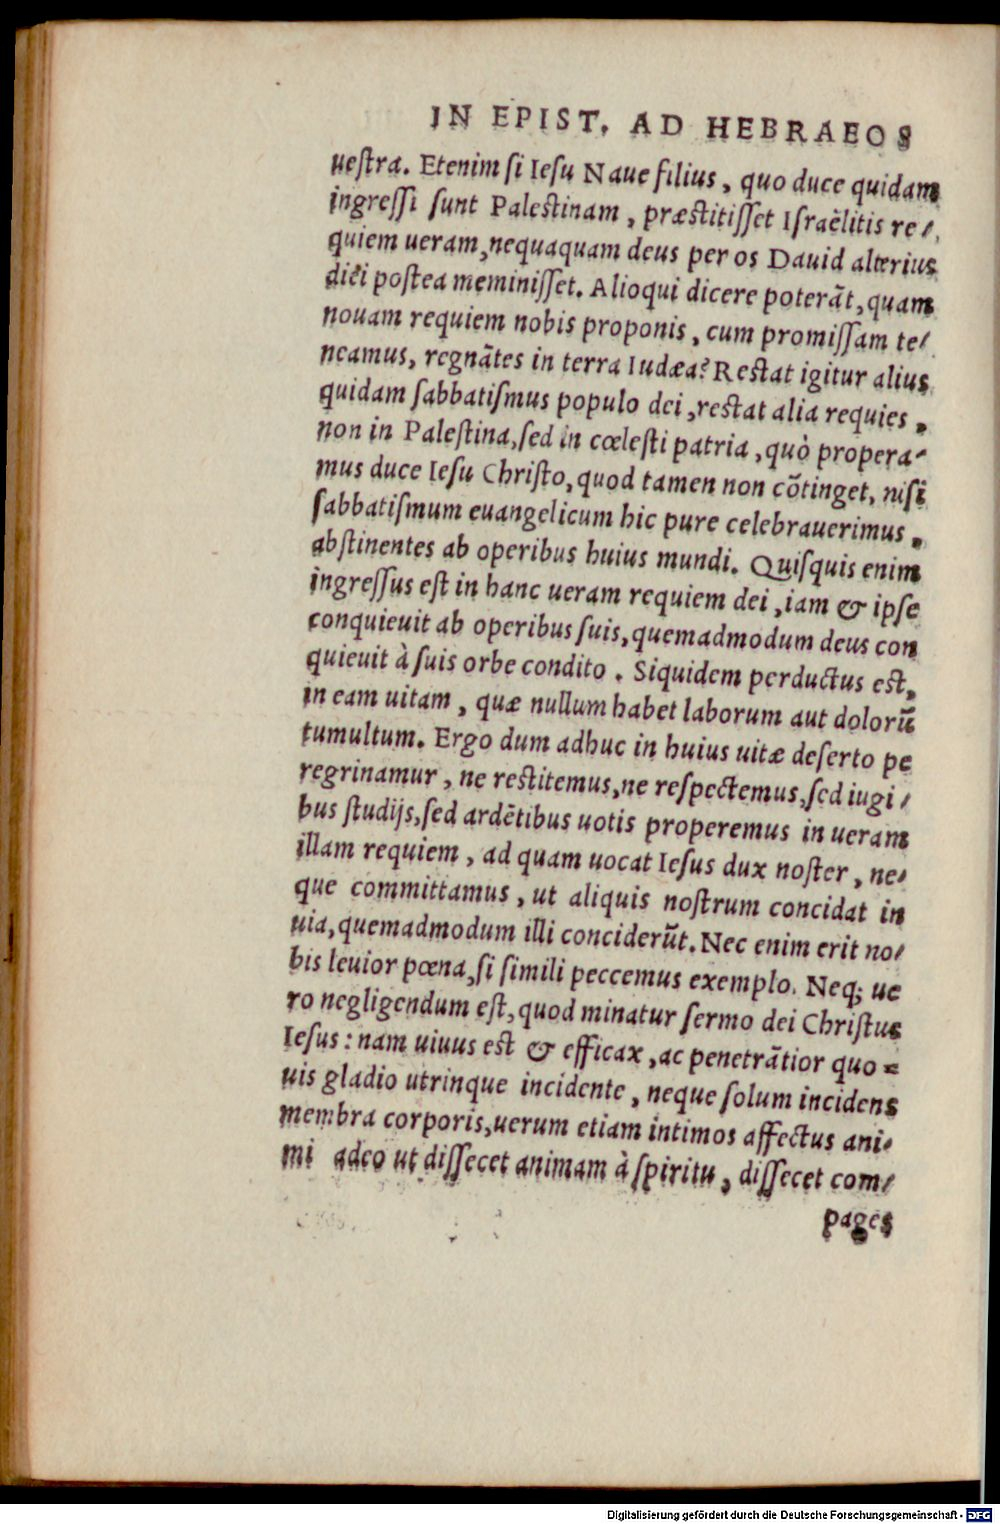 IN EPIST. AD HEBRAEOS
ueſtra. Etenim ſi Ieſu Naue filius, quo duce quidam
ingreſſi ſunt Paleſtinam, præſtitiſſet Iſraëlitis re/
quiem ueram, nequaquam deus per os Dauid alterius
diei poſtea meminiſſet. Alioqui dicere poterāt, quam
nouam requiem nobis proponis, cum promiſſam te/
neamus, regnātes in terra Iudæa? Reſtat igitur alius
quidam ſabbatiſmus populo dei, reſtat alia requies,
non in Paleſtina, ſed in cœleſti patria, quò propera-
mus duce Ieſu Chriſto, quod tamen non cōtinget, niſi
ſabbatiſmum euangelicum hic pure celebrauerimus,
abſtinentes ab operibus huius mundi. Quiſquis enim
ingreſſus eſt in hanc ueram requiem dei, iam & ipſe
conquieuit ab operibus ſuis, quemadmodum deus con
quieuit à ſuis orbe condito. Siquidem perductus eſt,
in eam uitam, quæ nullum habet laborum aut dolorū
tumultum. Ergo dum adhuc in huius uitæ deſerto pe
regrinamur, ne reſtitemus, ne reſpectemus, ſed iugi/
bus ſtudijs, ſed ardētibus uotis properemus in ueram
illam requiem, ad quam uocat Ieſus dux noſter, ne/
que committamus, ut aliquis noſtrum concidat in
uia, quemadmodum illi conciderūt. Nec enim erit no/
bis leuior pœna, ſi ſimili peccemus exemplo. Neq; ue
ro negligendum eſt, quod minatur ſermo dei Chriſtus
Ieſus: nam uiuus eſt & efficax, ac penetrātior quo=
uis gladio utrinque incidente, neque ſolum incidens
membra corporis, uerum etiam intimos affectus ani/
mi adeo ut diſſecet animam à ſpiritu, diſſecet com/
pages
Digitalisierung gefördert durch die Deutsche Forschungsgemeinschaft - DFG